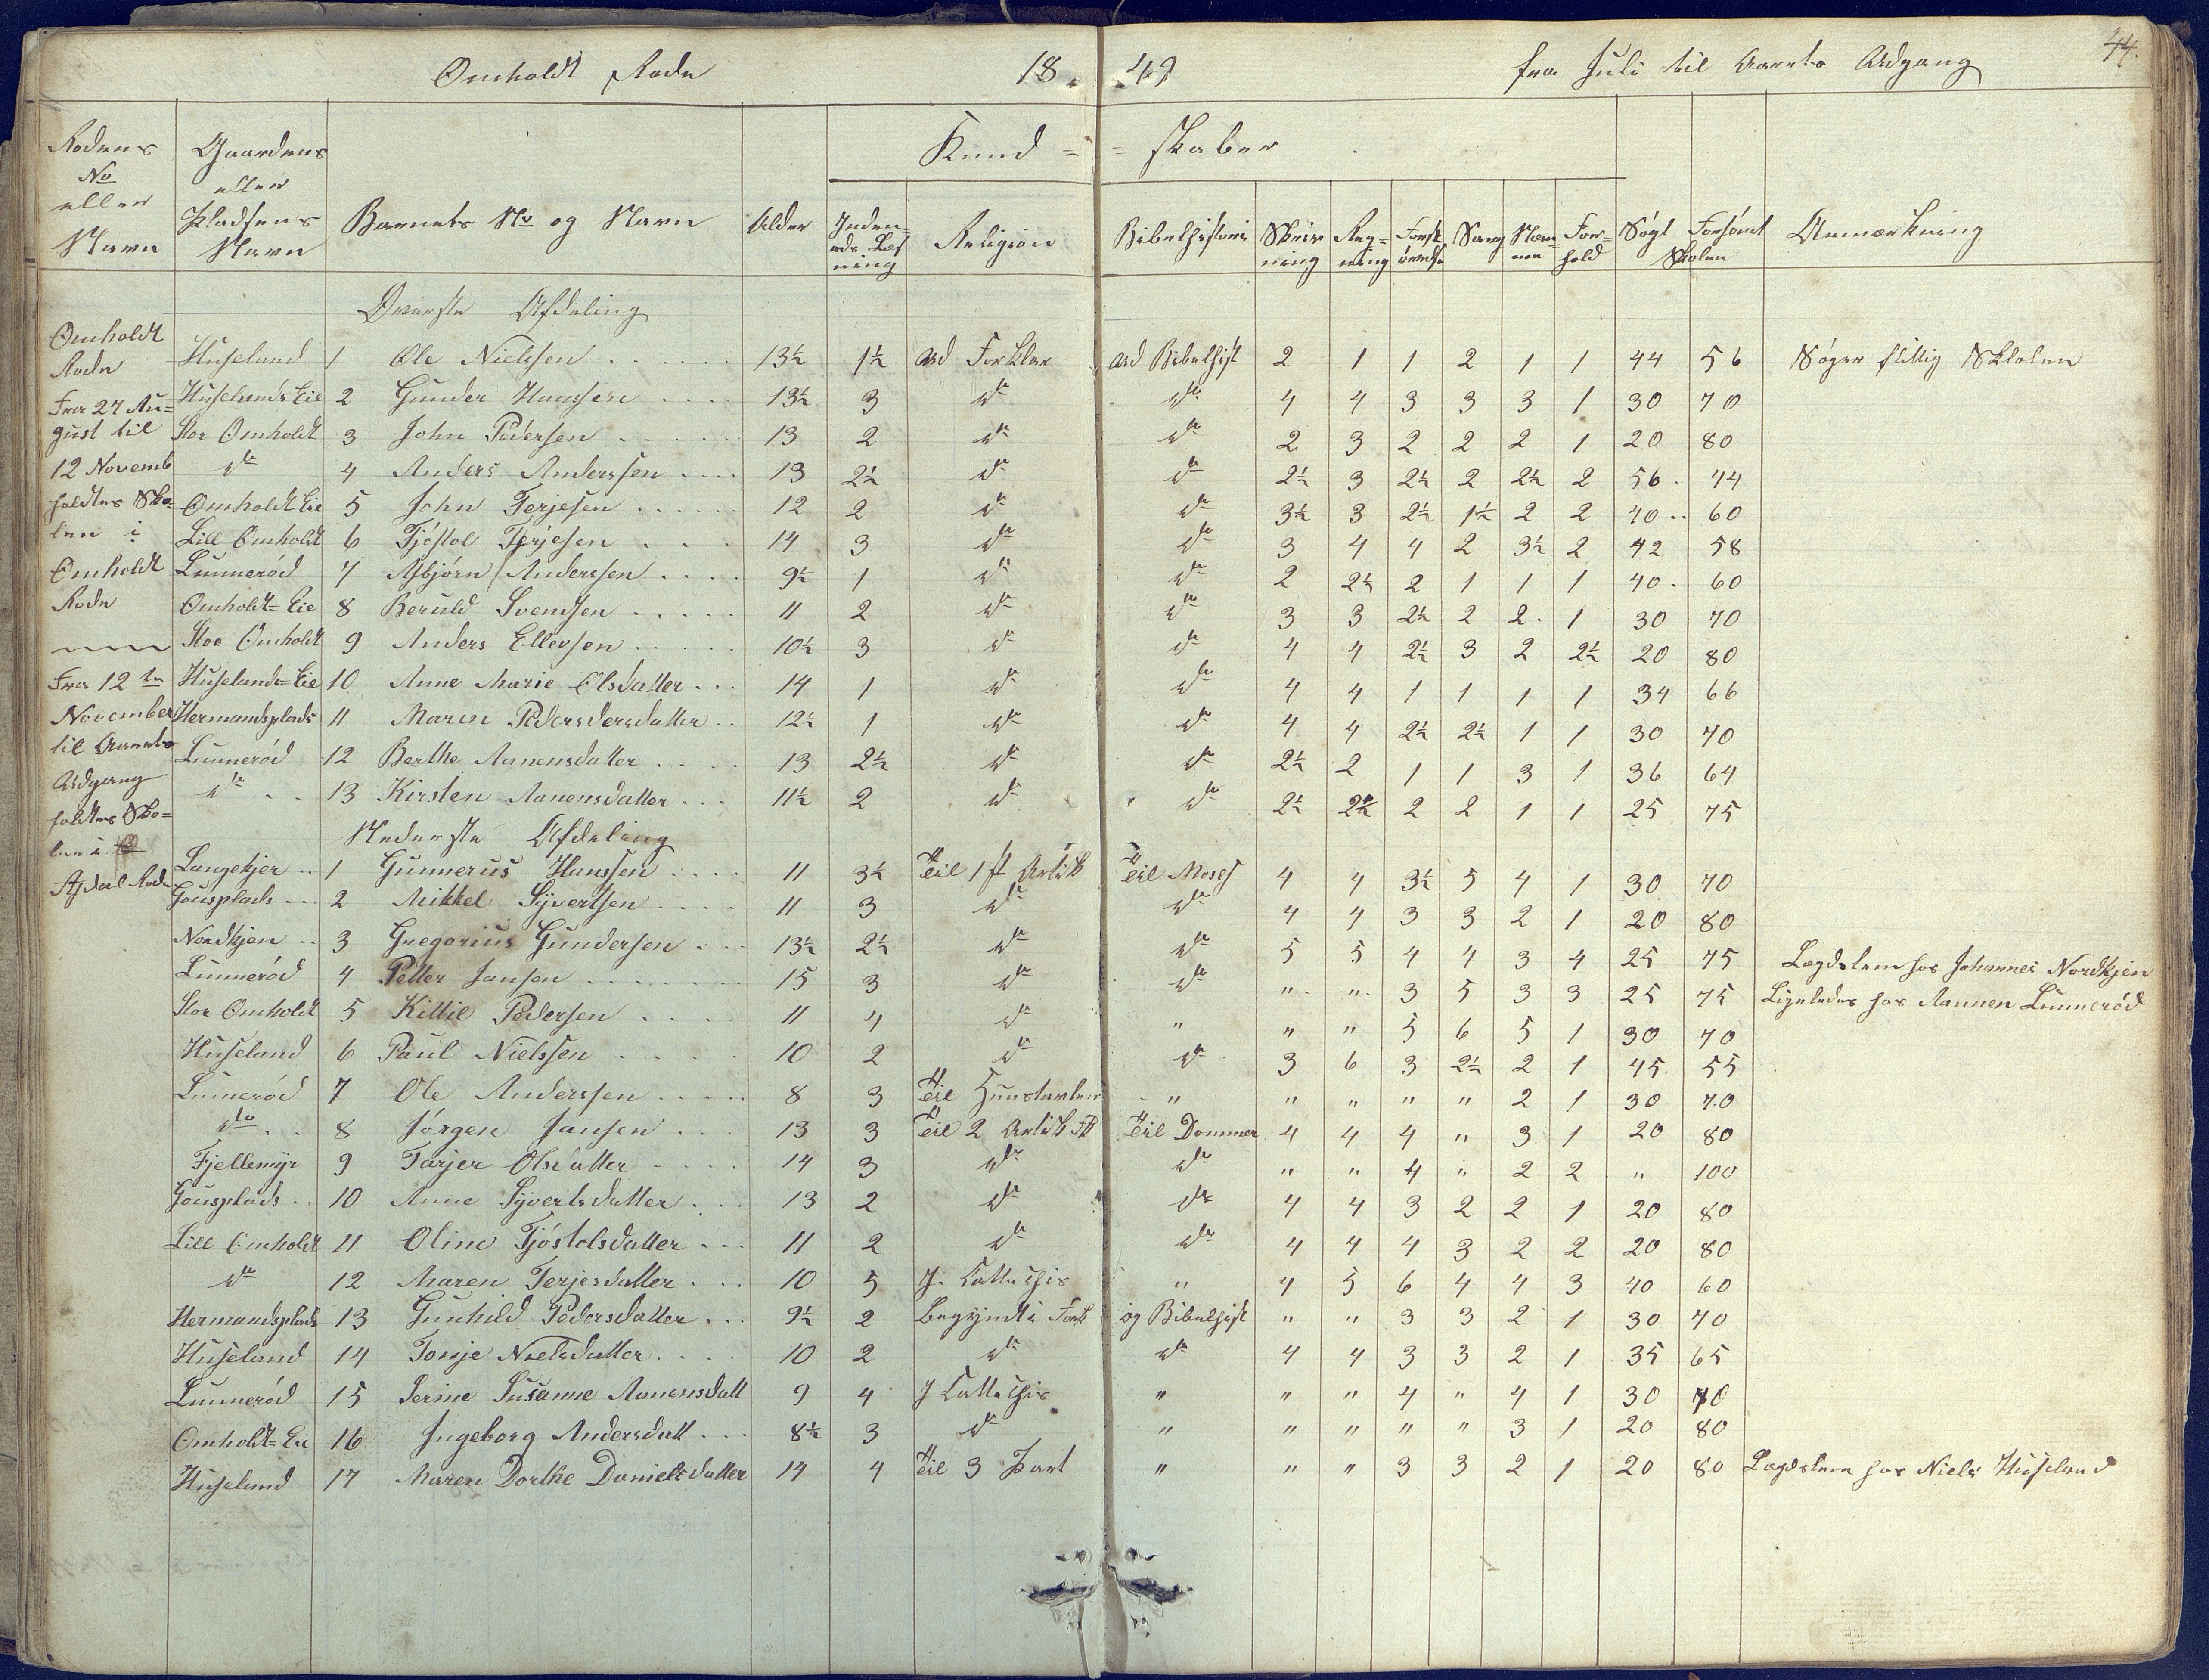 Omholdt Rode 1849 fra Juli til Aarets Udgang 44.
Rodens No eller Navn | Gaardens eller Pladsens Navn | Barnets No og Navn | Alder | Kundskaber | Søgt Skolen | Forsømt Skolen | Anmærkning
Indenads Læsning | Religion | Bibelhistorie | Skrivning | Regning | Sang | Forhold
Øverste Afdeling
Omholdt Rode
Fra 27 August til
12 Novemb
holdtes Skolen i
Omholdt Rode
Fra 12te
November
til Aarets
Udgang
holdtes Skolen i
Huseland 1 Ole Nielssen 13½ 1½ ud Forklar ud Bibelhist 2 1 1 2 1 1 44 56 Søger flittig Skolen
Huselands Eie 2 Gunder Hanssen 13½ 3 do do 4 4 3 3 3 1 30 70
Stor Omholdt 3 John Pedersen 13 2 do do 2 3 2 2 2 1 20 80
do 4 Anders Anderssen 13 2½ do do 2½ 3 2½ 2 2½ 2 56 44
Omholdt Eie 5 John Terjesen 12 2 do do 3½ 3 2½ 1½ 2 2 40 60
Lill Omholdt 6 Tjøstol Terjesen 14 3 do do 3 4 4 2 3½ 2 42 58
Lunnerød 7 Asbjørn Anderssen 9½ 1 do do 2 2½ 2 1 1 1 40 60
Omholdt=Eie 8 Beruld Svendsen 11 2 do do 3 3 2½ 2 2 1 30 70
Stor Omholdt 9 Anders Ellevsen 10½ 3 do do 4 4 2½ 3 2 2½ 20 80
Huselands=Eie 10 Anne Marie Olsdatter 14 1 do do 4 4 1 1 1 1 34 66
Hermandsplads 11 Maren Pedersdersdatter 12½ 1 do do 4 4 2½ 2½ 1 1 30 70
Lunnerød 12 Berthe Aanensdatter 13 2½ do do 2½ 2 1 1 3 1 36 64
do 13 Kirsten Aanensdatter 11½ 2 do do 2½ 2½ 2 2 1 1 25 75
Nederste Afdeling
Langekjer 1 Gunnerus Hanssen 11 3½ Til 1st Artik Til Moses 4 4 3½ 5 4 1 30 70
Gousplads 2 Mikkel Syvertsen 11 3 do do 4 4 3 3 2 1 20 80
Nordkjen 3 Gregorius Gundersen 13½ 2½ do do 5 5 4 4 3 4 25 75 Lægdslem hos Johannes Nordkjen
Lunnerød 4 Petter Jansen 15 3 do do " " 3 5 3 3 25 75 Ligeledes hos Aannen Lunnerød
Stor Omholdt 5 Kittil Pedersen 11 4 do " " " 5 6 5 1 30 70
Huseland 6 Paul Nielssen 10 2 do do 3 6 3 2½ 2 1 45 55
Lunnerød 7 Ole Anderssen 8 3 Til " " " " " 2 1 30 70
do 8 Jørgen Jansen 13 3 Til 2 Artik Til Dommer 4 4 4 " 3 1 20 80
Fjellemyr 9 Tarjer Olsdatter 14 3 do do " " 4 " 2 2 " 100
Gousplads 10 Anne Syvertsdatter 13 2 do do 4 4 3 2 2 1 20 80
Lill Omholdt 11 Oline Tjøstolsdatter 11 2 do do 4 4 4 3 2 2 20 80
do 12 Maren Terjesdatter 10 5 J. Cattechis " 4 5 6 4 4 3 40 60
Hermandsplads 13 Gunhild Pedersdatter 9½ 2 begyndt i Fork og Bibelhist " " 3 3 2 1 30 70
Huseland 14 Tonje Nielsdatter 10 2 do do 4 4 3 3 2 1 35 65
Lunnerød 15 Serine Susanne Aanensdatt 9 4 J Cattechis " " " 4 " 4 1 30 70
Omholdt=Eie 16 Ingeborg Andersdatt 8½ 3 do " " " " " 3 1 20 80
Huseland 17 Maren Dorthe Danielsdatter 14 4 Til 3 Part " " " 3 3 2 1 20 80 Lægdslem hos Niels Huseland